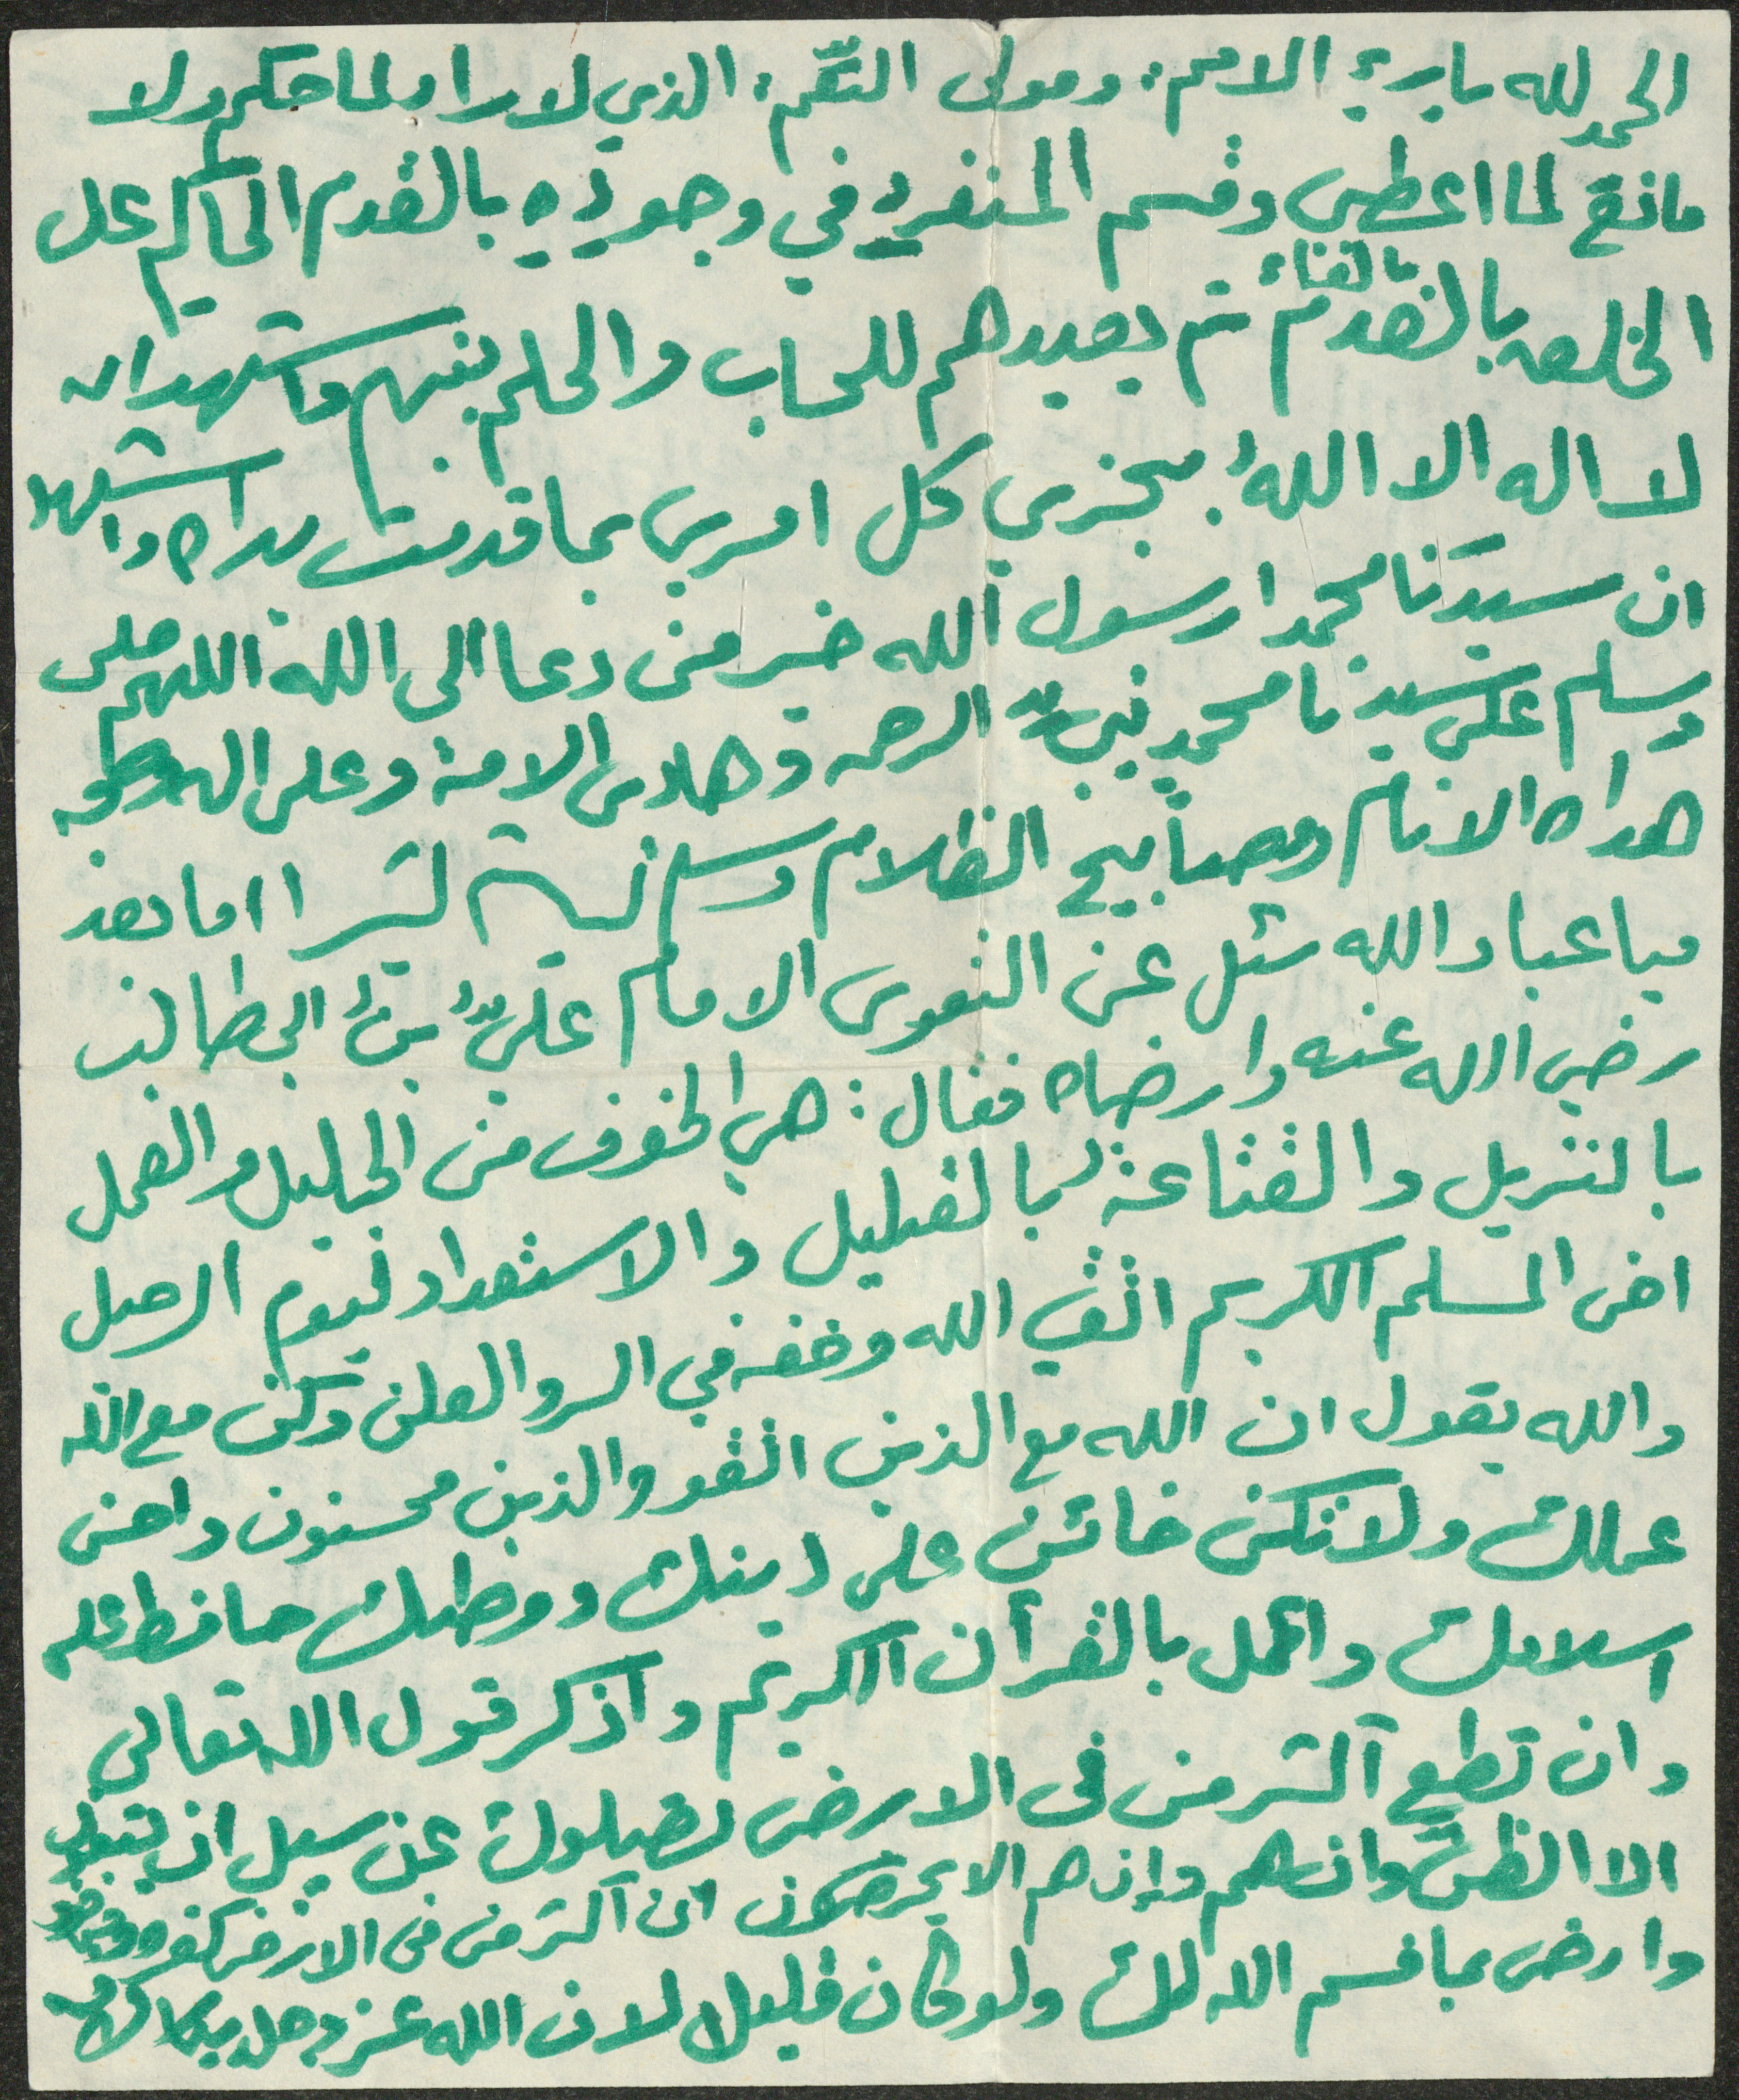 الحمد لله باريء الامم: ومولى النقم: الذي لا راد لما حكم ولا
مانع لما اعطى وقسم المنفرد في وجوده بالقدم الحاكم على
بالفناء
الخلق بالعدم ثم يعيدهم للحساب والحكم بينهم واشهد ان
لا اله الا الله يجزي كل امرىء بما قدمت يداه واشهد
ان سيدنا محمدا رسول الله خير من دعا الى الله اللهم صلى
وسلم على سيدنا محمد نبي الرحمه وهادى الامة وعلى اله وصحبه
هداه الانام ومصابيح الظلام وسلم تسليم كثيرا اما بعد
فيا عباد الله سئل عن التقوى الامام علي بن ابي طالب
رضي الله عنه وارضاه فقال: هي الخوف من الجليل والعمل
بالتنزيل والقناعة بالقليل والاستعداد ليوم الرحيل
اخى المسلم الكريم اتقي الله وخفه في السر والعلن وكن مع الله
والله يقول ان الله مع الذين اتقو والذين محسنون واحسن
عملك ولا تكن خائن على دينك ووطنك حافظ على
اسلامك واعمل بالقرآن الكريم واذكر قول الله تعالى
وان تطع آكثر من فى الارض يضيلوك عن سبيل ان يتبعون
الا الظن وانهم وإن هم الا يخرصون ان آكثر من فى الارض كفروا
وارض بما قسم الله لك ولو كان قليل لان الله عز وجل